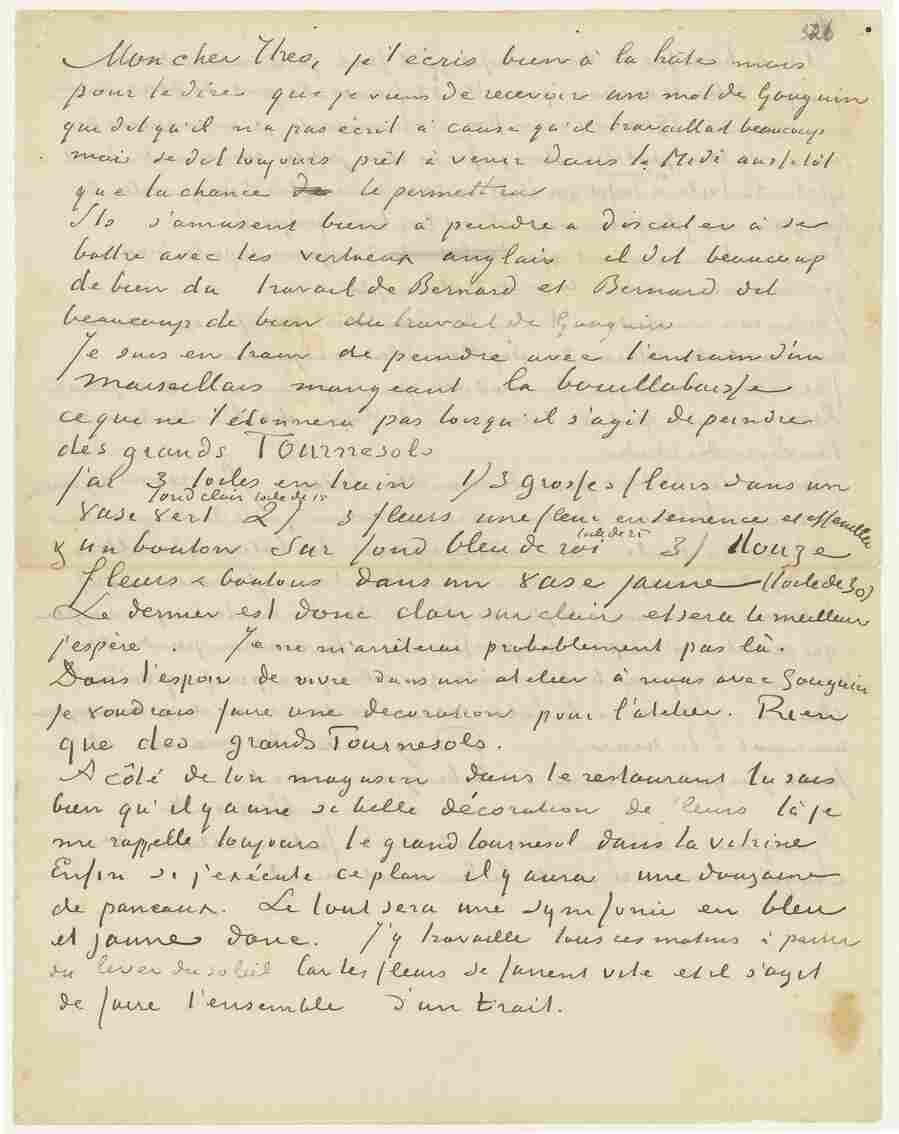 526
Mon cher Theo, je t'écris bien à la hâte mais
pour te dire que je viens de recevoir un mot de Gauguin
qui dit qu'il n'a pas écrit à cause qu'il travaillait beaucoup
mais se dit toujours prêt à venir dans le Midi aussitôt
que la chance de le permettra
Ils s'amusent bien à peindre a discuter à se
battre avec les vertueux anglais il dit beaucoup
de bien du travail de Bernard et Bernard dit
beaucoup de bien du travail de Gauguin
Je suis en train de peindre avec l'entrain d'un
Marseillais mangeant la bouillabaisse
ce que ne t'étonnera pas lorsqu'il s'agit de peindre
des grands Tournesols
j'ai 3 toiles en train 1) 3 grosses fleurs dans un
fond clair toile de 15
vase vert 2) 3 fleurs une fleur en semence et effeuillée
toile de 25
& un bouton sur fond bleu de roi 3) douze
fleurs & boutons dans un vase jaune (toile de 30)
Le dernier est donc clair sur clair et sera le meilleur
j'espère. Je ne m'arrêterai probablement pas là.
Dans l'espoir de vivre dans un atelier à nous avec Gauguin
je voudrais faire une décoration pour l'atelier. Rien
que des grands Tournesols.
A côté de ton magasin dans le restaurant tu sais
bien qu'il y a une si belle décoration de fleurs là je
me rappelle toujours le grand tournesol dans la vitrine
Enfin si j'exécute ce plan il y aura une douzaine
de panneaux. Le tout sera une symfonie en bleu
et jaune donc. J'y travaille tous ces matins à partir
du lever du soleil Car les fleurs se fanent vite et il s'agit
de faire l'ensemble d'un trait.